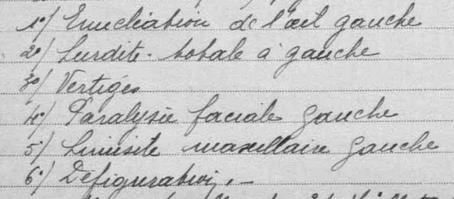 1º/ Enucliation de l'œil gauche
2º/ Surdite. totale a gauche
3º/ Vertiges
4º/ Paralysie faciale gauche
5º/ Sinusite maxillaire gauche
6º/ Défiguration. -